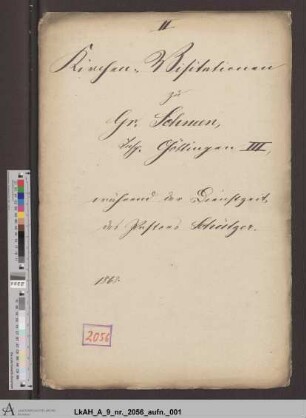 II
Kirchen-Visitationen
zu
Gr. Schneen,
Insp. Göttingen III,
während der Dienstzeit
des Pastors
186
2056
LkAH_A_9_nr._2056_aufn._001